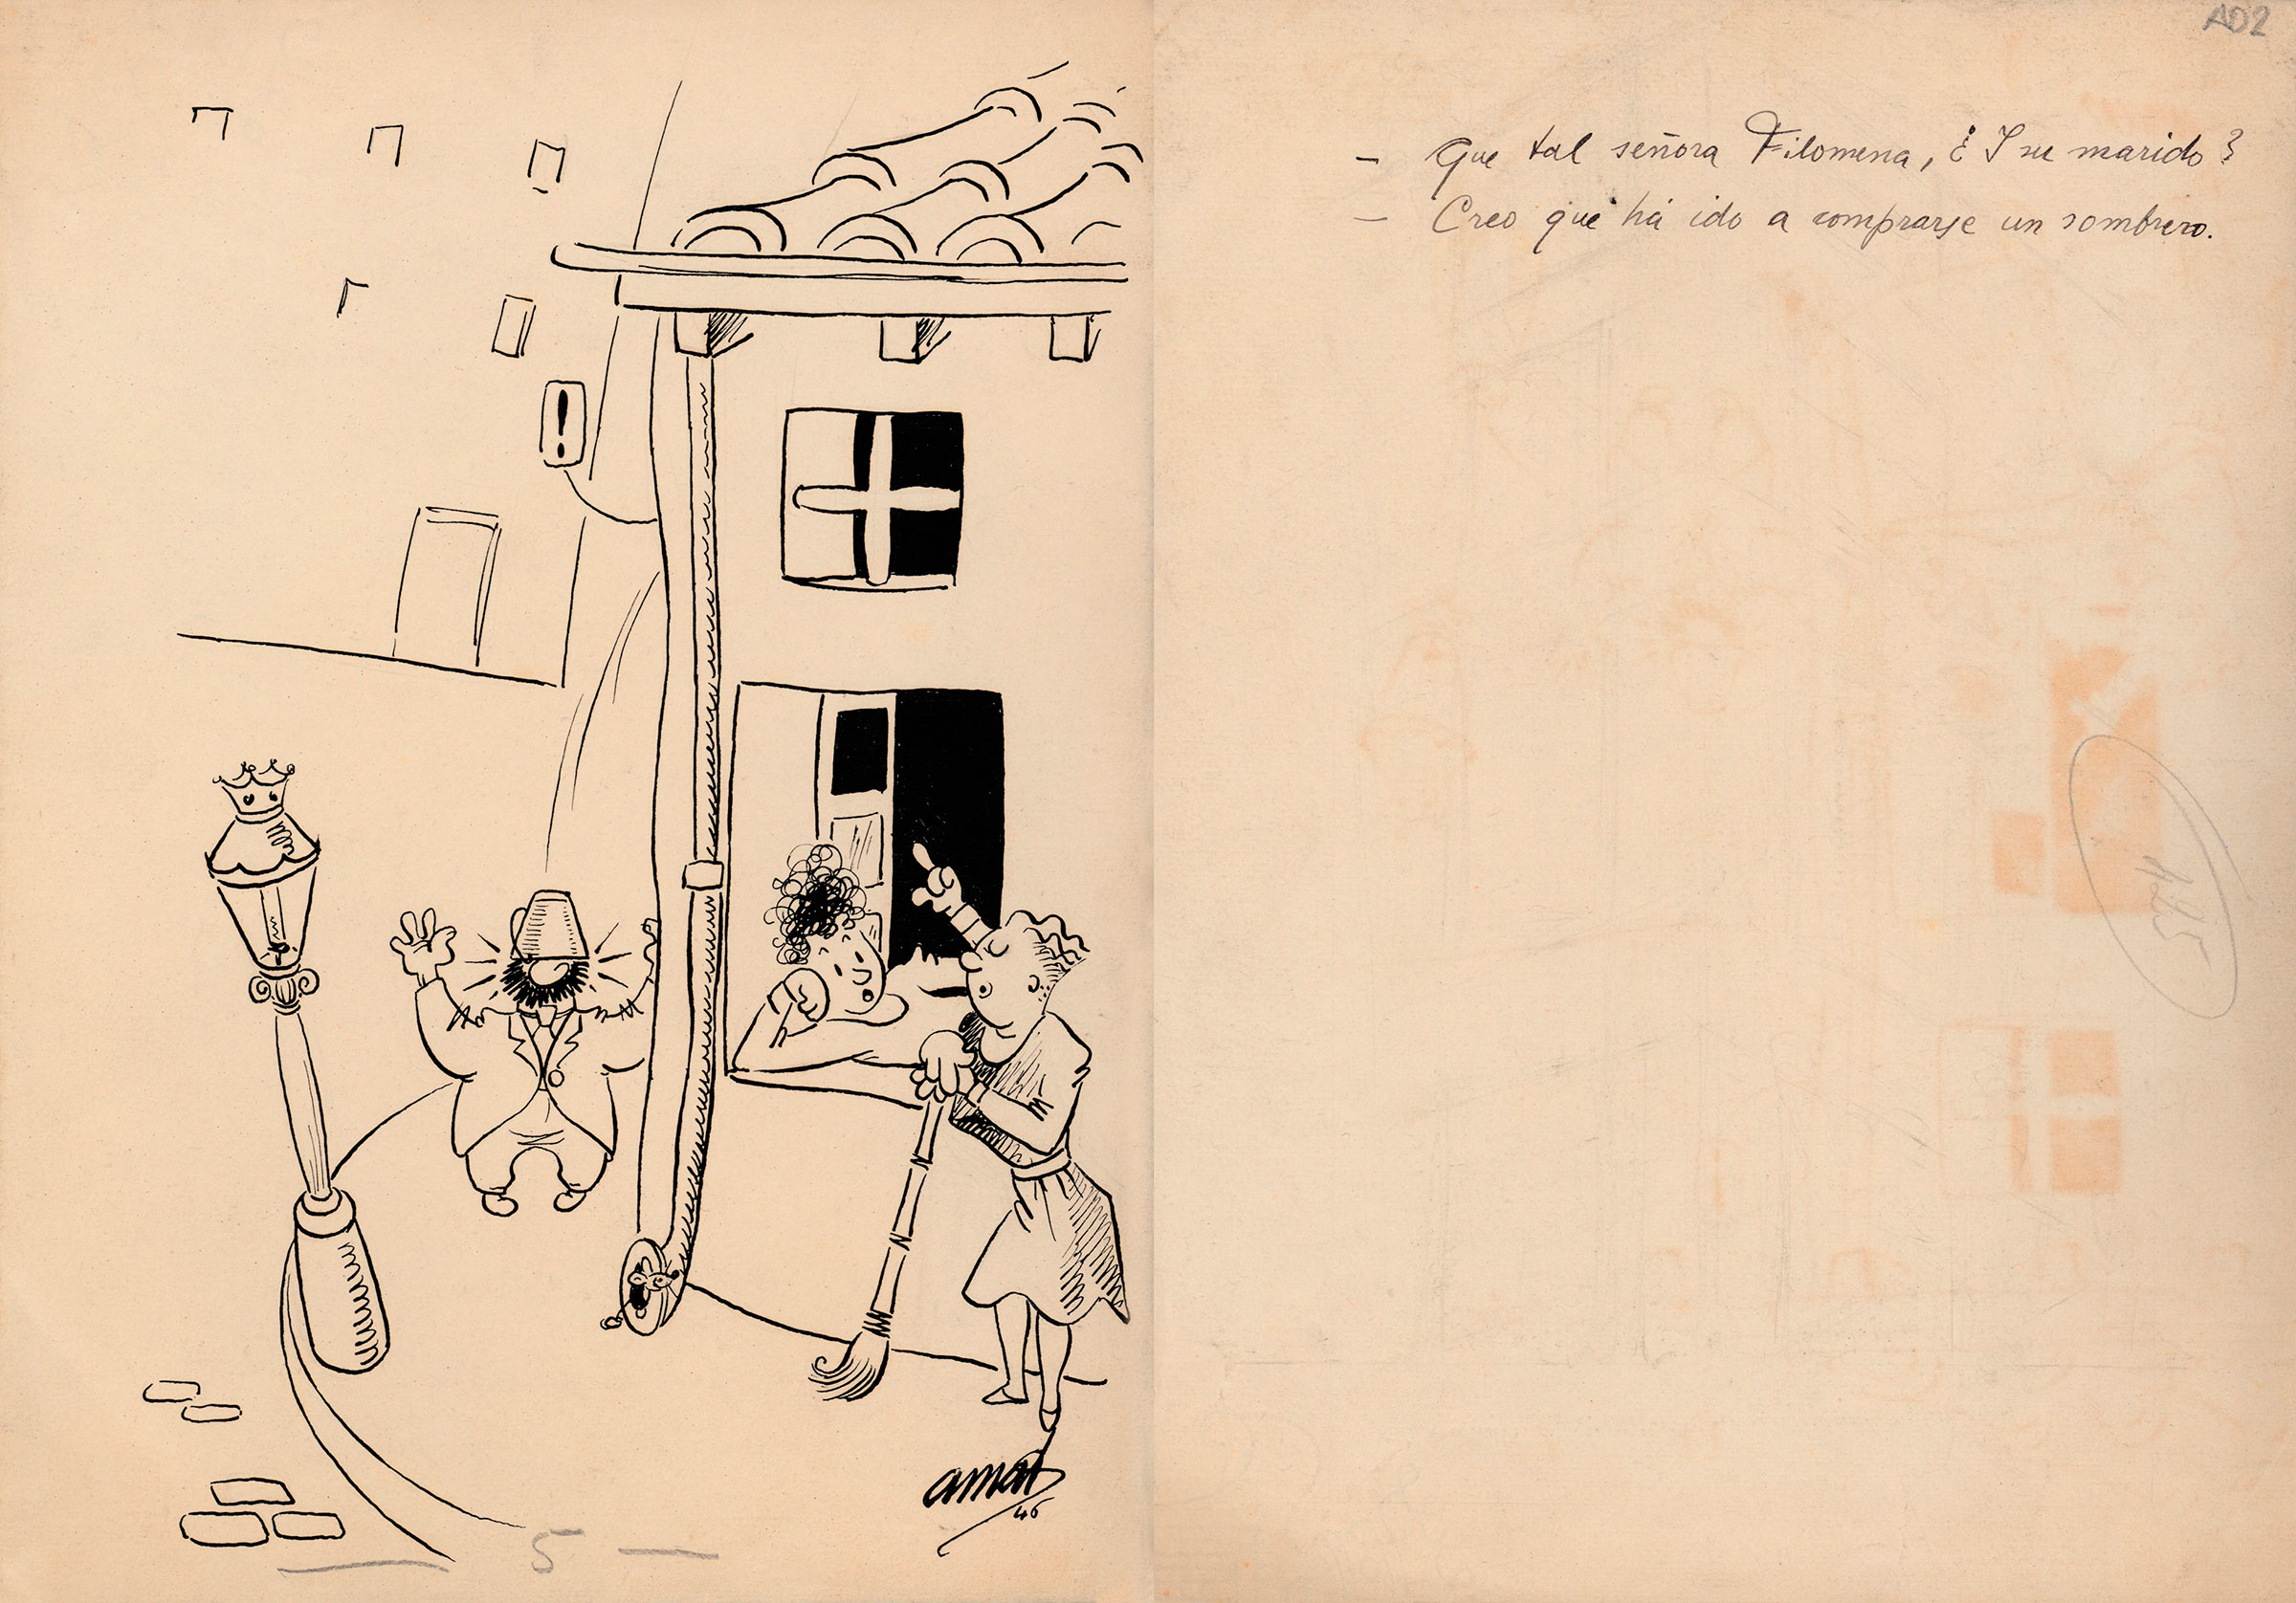 !
amat
46
5 —
AD2
- Que tal señora Filomena, ¿Y su marido?
- Creo que há ido a comprarse un sombrero.